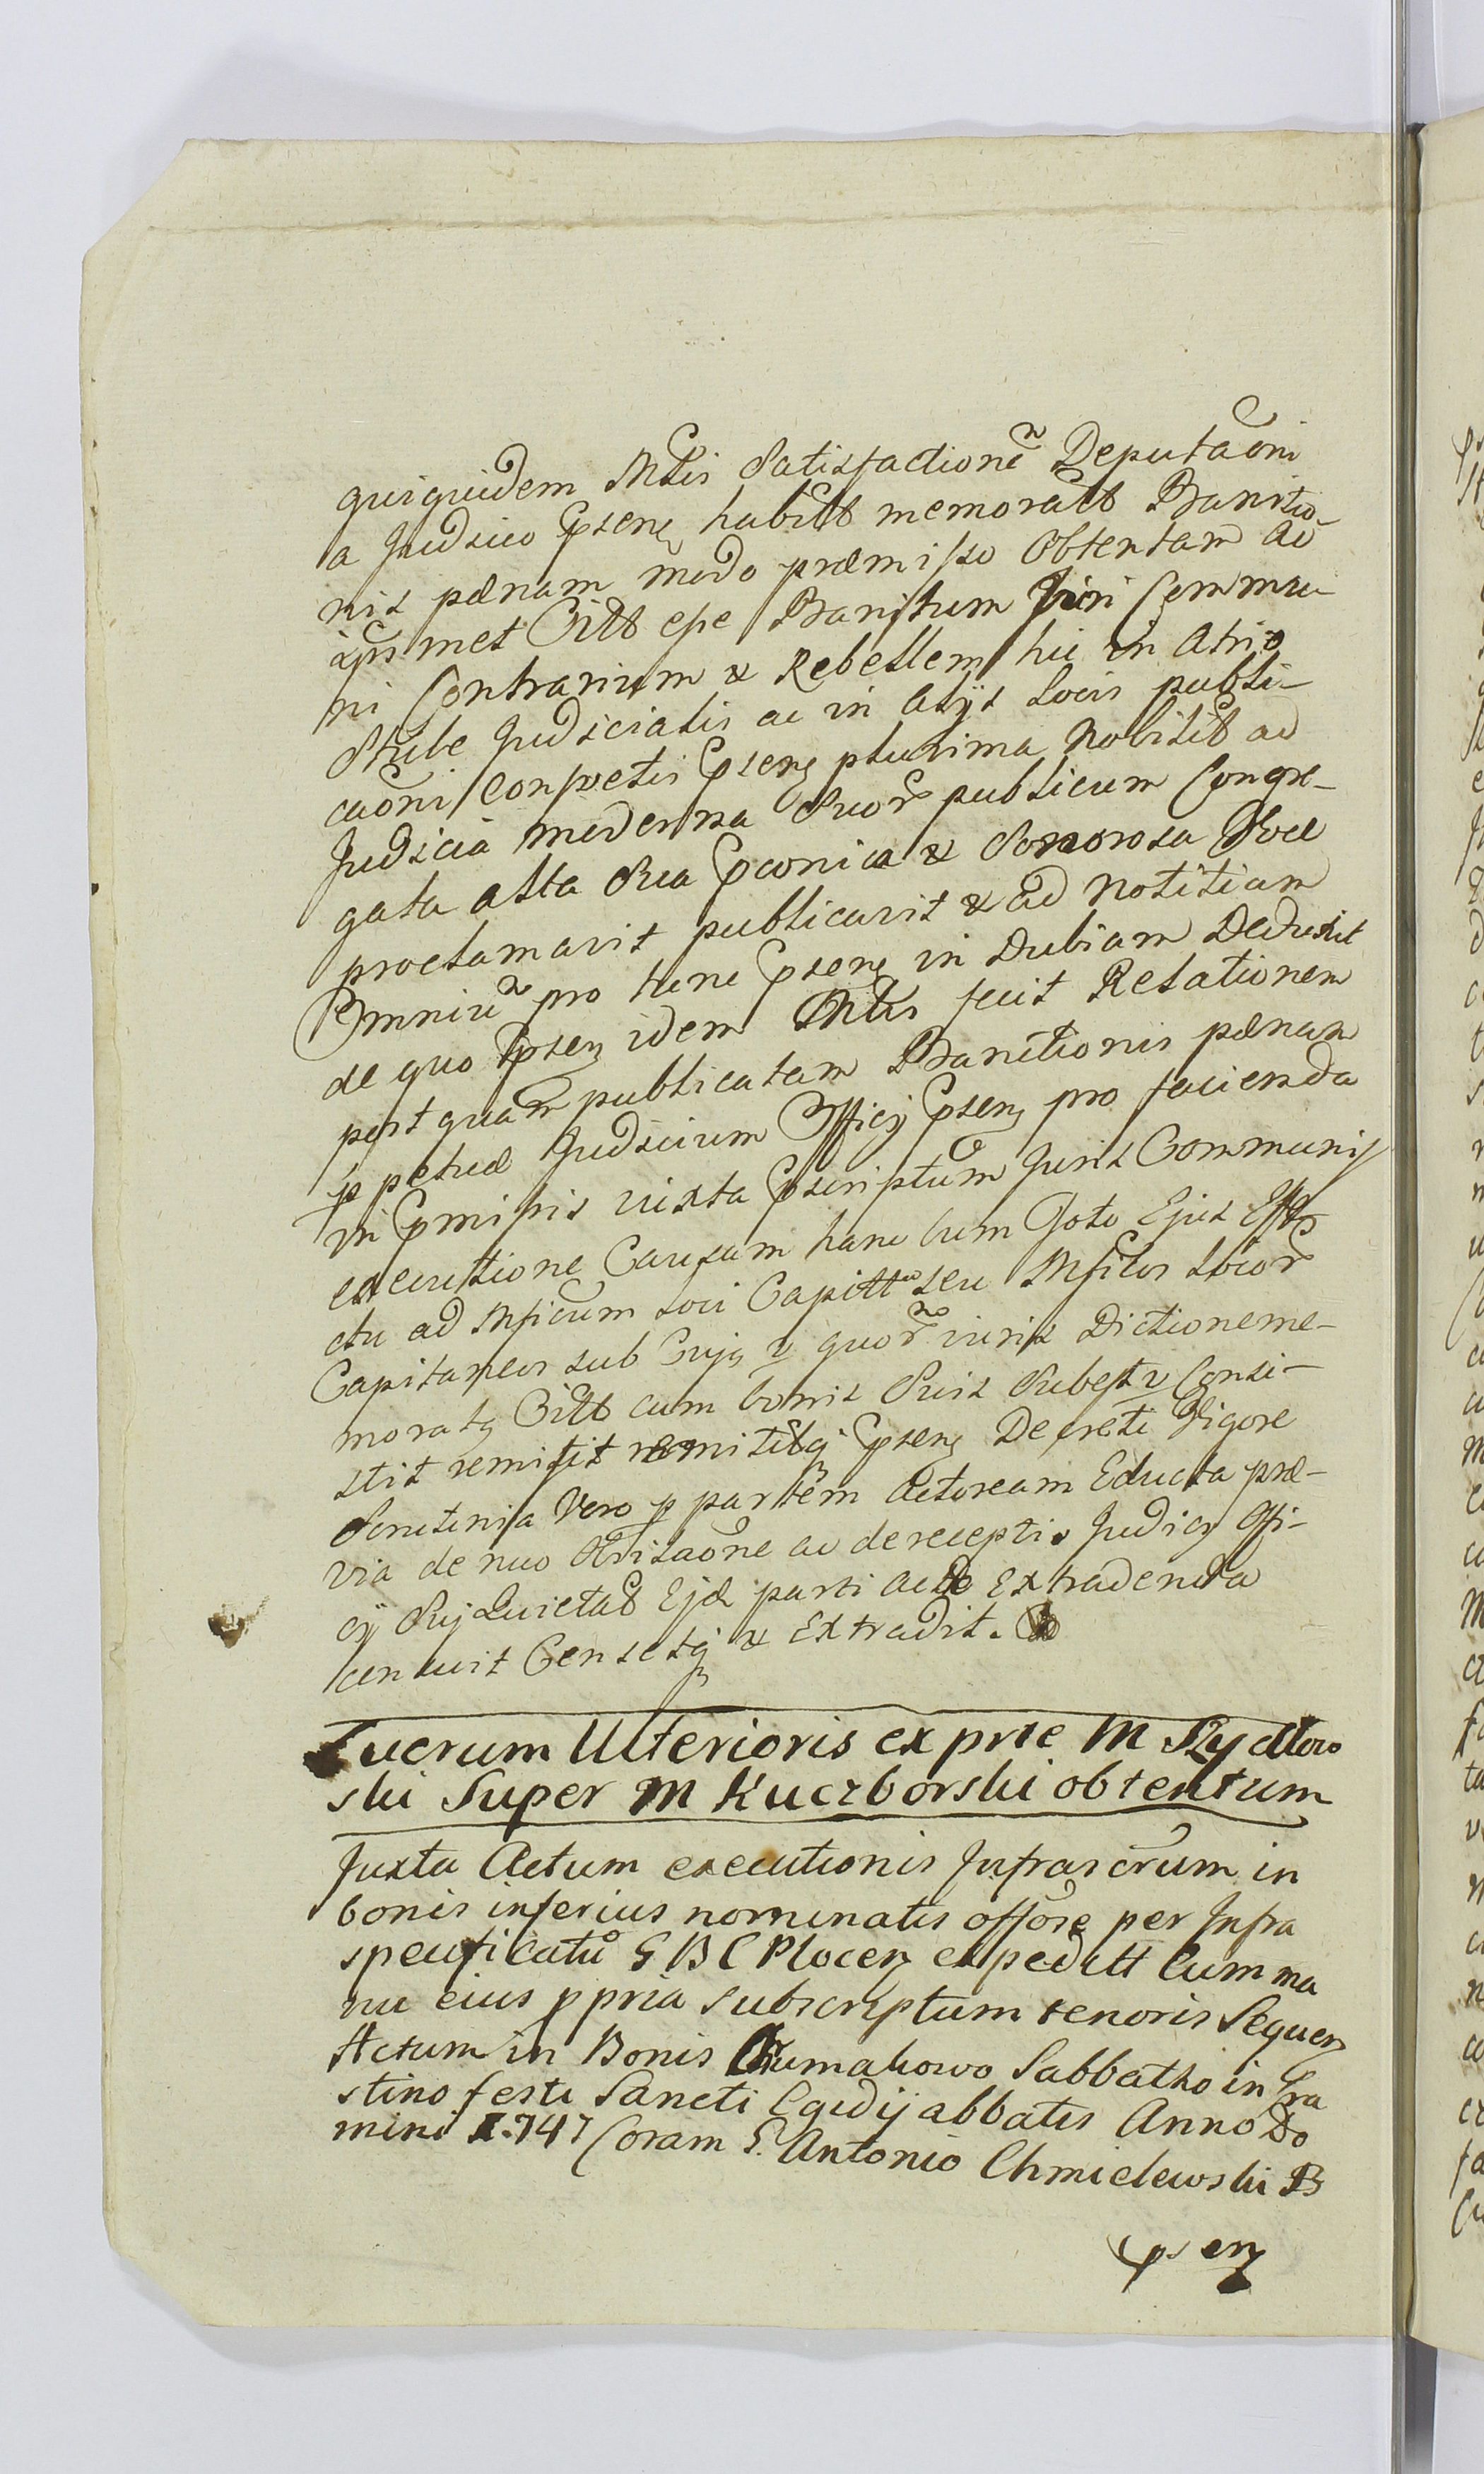 quiquidem Mtlis Satisfactione Deputaoni
a Judicio Ppsenẹ habitt memoratt Bannitio-
nis pænam modo præmisso Obtentam ac
ipsmet Citt esse Banitum Juri Commu-
ni Contrarium & Rebellem hic in Atrio
Stube Judicialis ac in alijs Locis publi-
caoni consvetis Psenẹ plurima Nobilit ad
Judicia moderna Suor publicum Congre-
gata alta Sua Pconica & Sonorosa Voce
proclamavit publicavit & ad notitiam
Omniu pro tunc Psenẹ in Dubiam Deduxit
de quo Ppsenẹ idem Mtlis fecit Relationem
post quam publicatam Bannitionis pænam
ppetuæ Judicium Officij Psenẹ pro facienda
in Pmissis iuxta Pscriptum Juris Communis
executione Causam hanc Cum Toto Ejus Effe
ctu ad Mficum Loci Capitt seu Mficos Locor
Capitaneos sub Cujq v quor iuris Dictione me-
moratq Citt cum bonis Suis Subest v Consi-
stit remisit remititqj Psenẹ Decreti Vigore
Scrutinia Vero p partem Actoream Educta præ-
via de nuo Avisaone ac de receptis Judicij Offi-
cij Suj Quietat Ejd parti Acto Extradenda
censuit Censetqj & Extradit.
Lucrum Ulterioris ex prte M Szydłow
ski Super M Kuczborski obtentum
Juxta Actum executionis Infrascrum in
bonis inferius nominatis offose per Infra
specificatu G B C Plocenẹ expeditt Cum ma
nu eius ppria subscriptum tenoris Sequenẹ
Actum in Bonis Chumahowo Sabbatho in Cra
stino festi Sancti Egidij abbatis Anno Do
mini 1.747 Coram G. Antonio Chmielewski B
Psenẹ